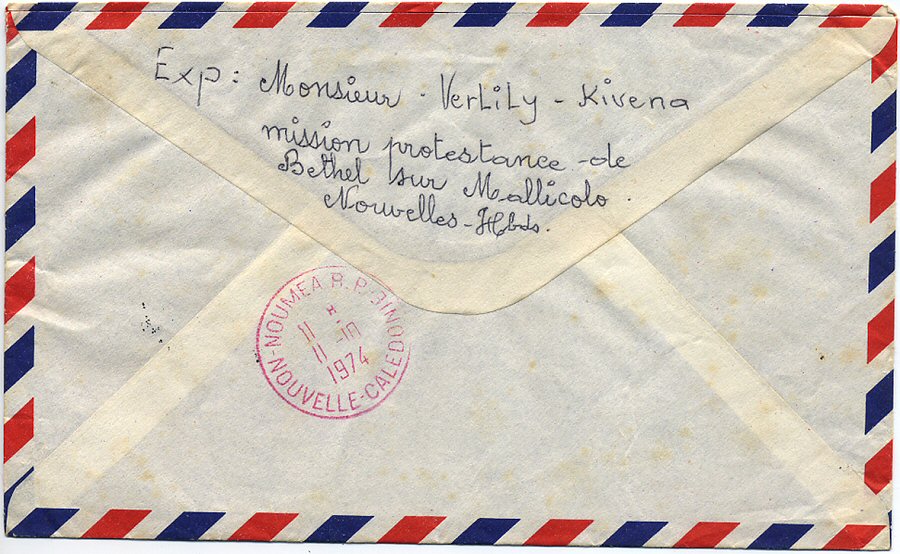 Exp: Monsieur - VerLiLy - Kivena
mission protestance - de
Bethel sur Mallicolo.
Nouvelles-Hbds.
NOUMEA R.P.
NOUVELLE-CALEDONIE
11
11 -10
1974